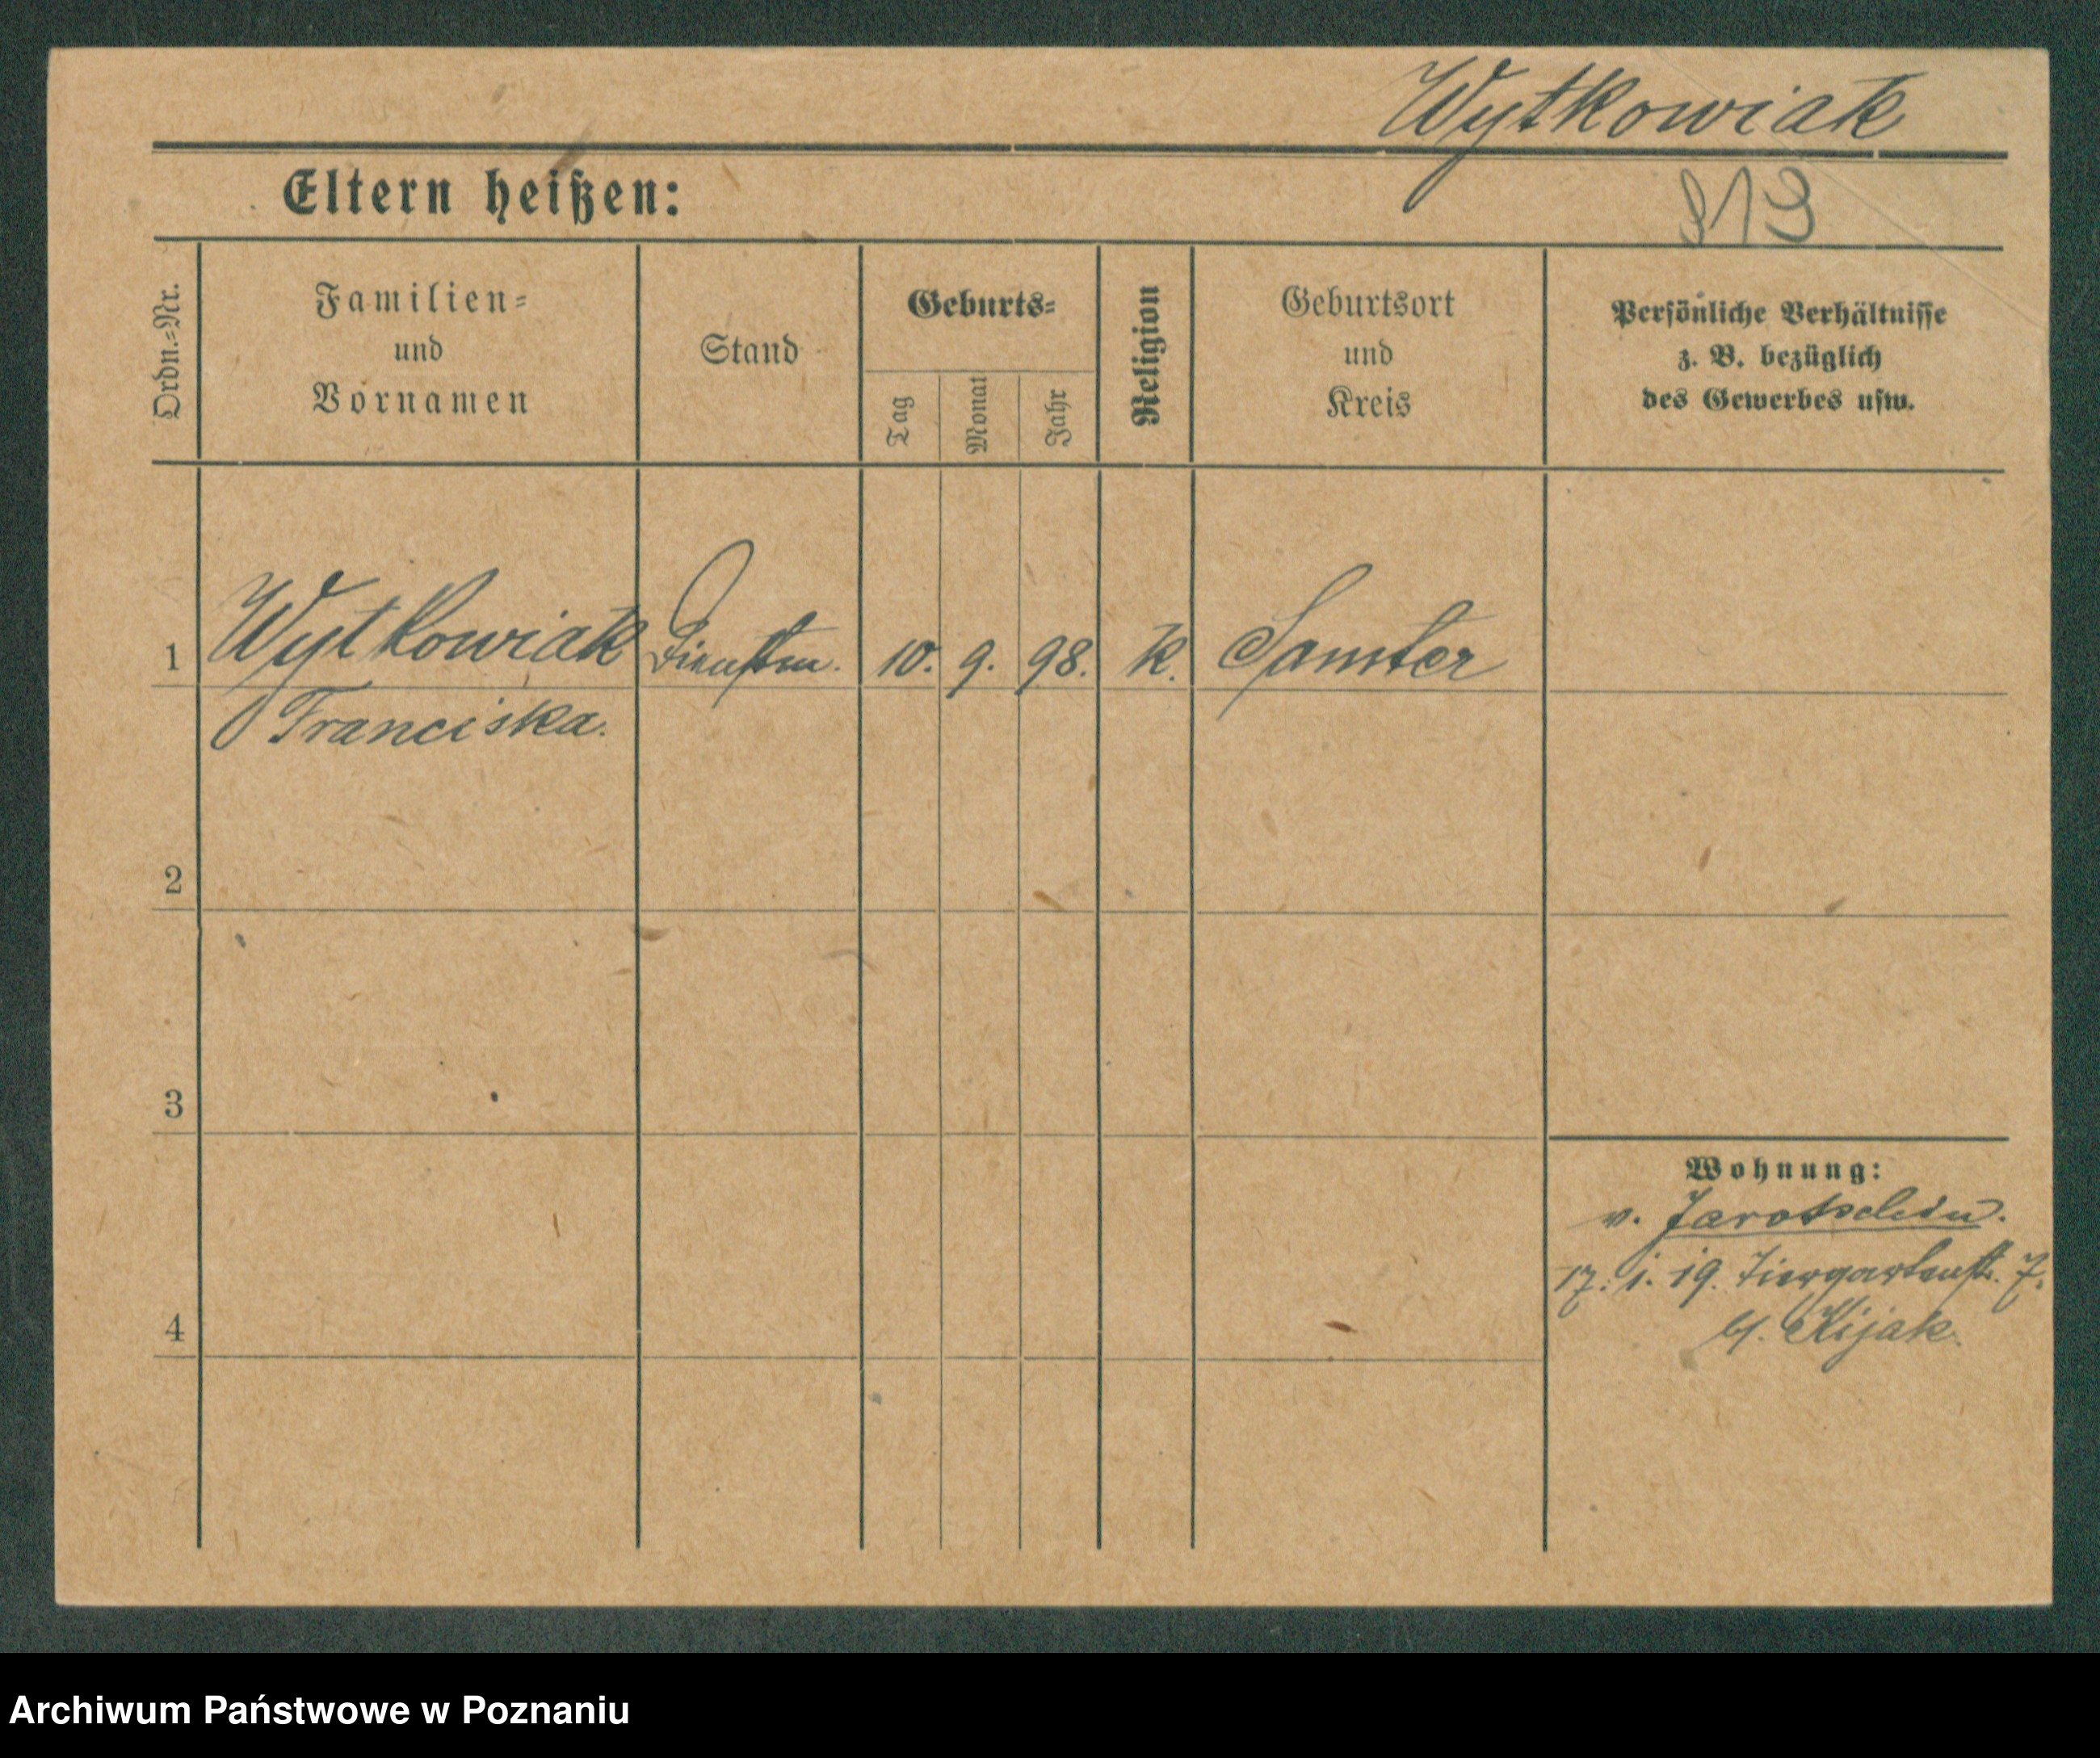 Wytkowiak
Eltern heißen:
819
Ordn.-Nr.
Familien-
und
Vornamen
Stand
Geburts-
Tag
Monat
Jahr
Religion
Geburtsort
und
Kreis
Persönliche Verhältnisse
z. B. bezüglich
des Gewerbes usw.
1 Wytkowiak Dienstm. 10. 9. 98. K. Samter
Franciska.
2
3
Wohnung:
v. Jarotschin.
17. 1. 19. Tiergartenstr. 7.
4
b/. Kijak.
Archiwum Państwowe w Poznaniu